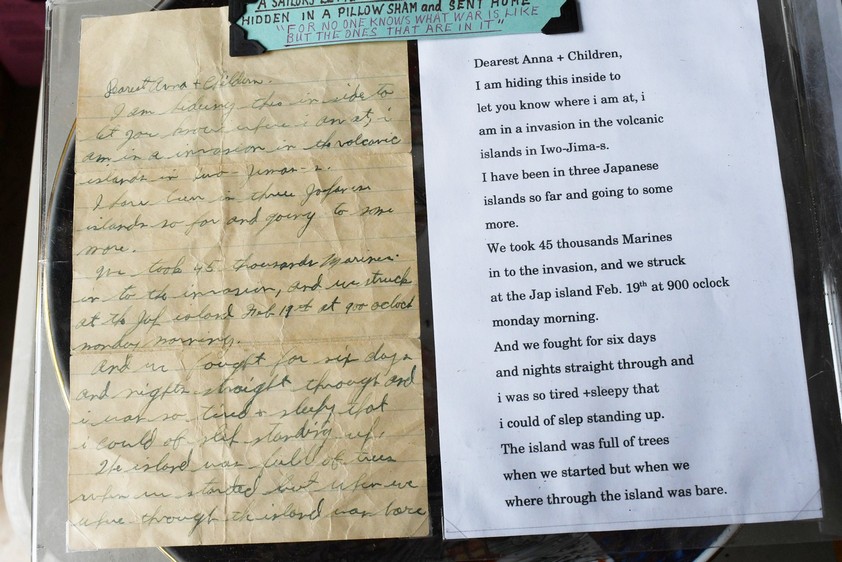 A SAILORS
HIDDEN IN A PILLOW SHAM and SENT HOME
"FOR NO ONE KNOWS WHAT WAR IS LIKE
BUT THE ONES THAT ARE IN IT"
Dearest Anna + Children.
I am hiding this in side to
let you know where i am at, i
am in a invasion in the volcanic
islands in Iwo-Jima-s.
I have been in three Japanese
islands so far and going to some
more.
We took 45 thousands Marines
in to the invasion, and we struck
at the Jap island Feb. 19th at 900 oclock
monday morning.
And we fought for six days
and nights straight through and
i was so tired + sleepy that
i could of slep standing up.
The island was full of trees
when we started but when we
where through the island was bare
Dearest Anna + Children,
I am hiding this inside to
let you know where i am at, i
am in a invasion in the volcanic
islands in Iwo-Jima-s.
I have been in three Japanese
islands so far and going to some
more.
We took 45 thousands Marines
in to the invasion, and we struck
at the Jap island Feb. 19th at 900 oclock
monday morning.
And we fought for six days
and nights straight through and
i was so tired +sleepy that
i could of slep standing up.
The island was full of trees
when we started but when we
where through the island was bare.